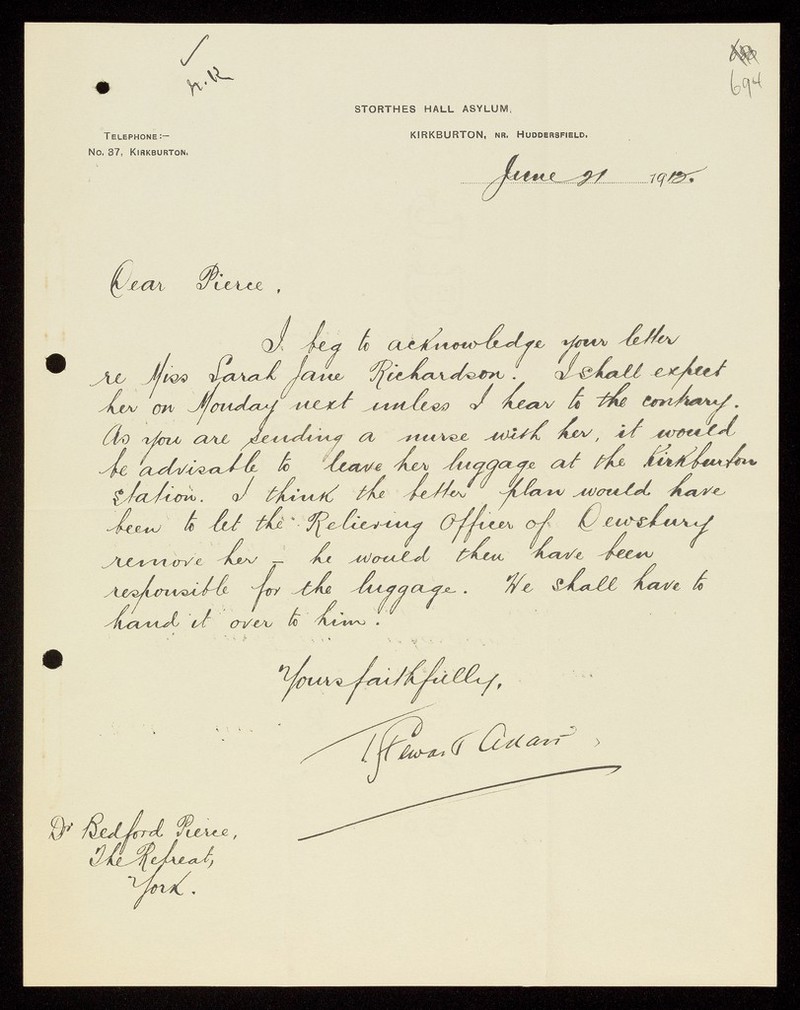 694
STORTHES HALL ASYLUM,
KIRKBURTON, NR. HUDDERSFIELD.
TELEPHONE:—
No. 37, KIRKBURTON.
June 21 1912.
Dear Pierce,
I beg to acknowledge your letter
re Miss Sarah Jane Richardson. I shall expect
her on Monday next unless I hear to the contrary.
As you are sending a nurse with her, it would
be advisable to leave her luggage at the Kirkburton
Station. I think the better plan would have
been to let the Relieving Officer of Dewsbury
remove her — he would then have been
responsible for the luggage. We shall have to
hand it over to him.
Yours faithfully,
T Stewart Adair
Dr Bedford Pierce,
The Retreat,
York.